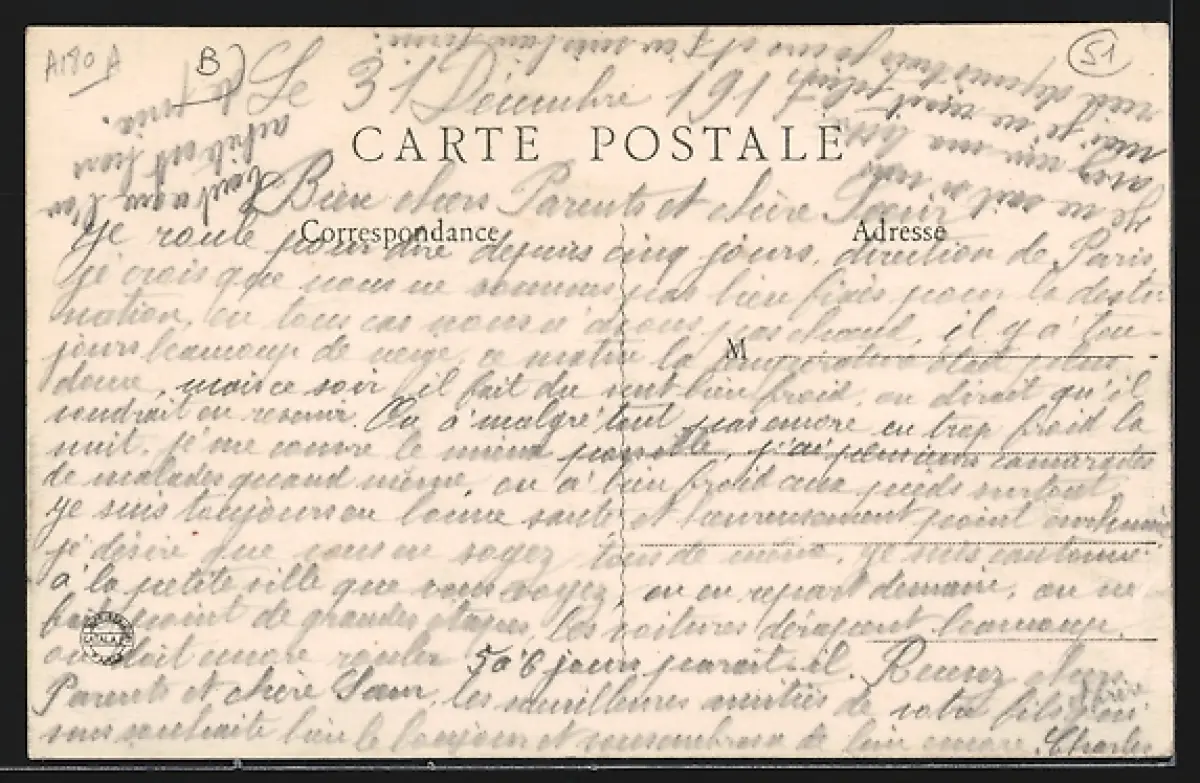 A180 A
B
51
Le 31 Décembre 1917
CARTE POSTALE
Bien chers Parents et chère Sœur
Correspondance
Adresse
Je roule pour dire depuis cinq jours, direction de Paris,
je crois que nous ne sommes pas bien fixés pour la desti-
nation, en tous cas nous n'avons pas chaud, il y a tou-
M
jours beaucoup de neige, ce matin la température était plus
douce, mais ce soir il fait du vent bien froid, on dirait qu'il
voudrait en revenir. On a malgré tout pas encore eu trop froid la
nuit, je me couvre le mieux possible, j'ai plusieurs camarades
de malades quand même, on a bien froid aux pieds surtout,
Je suis toujours en bonne santé et heureusement point enrhumé
je désire que vous en soyez tous de même. Je suis cantonné
à la petite ville que vous voyez, on en repart demain, on ne
fait point de grandes étapes les voitures dérapent beaucoup,
on doit encore rouler 5 à 6 jours parait-il. Recevez chers
Parents et chère Sœur, les meilleures amitiés de votre fils qui
vous souhaite bien le bonjour et vous embrasse de loin encore. Charles